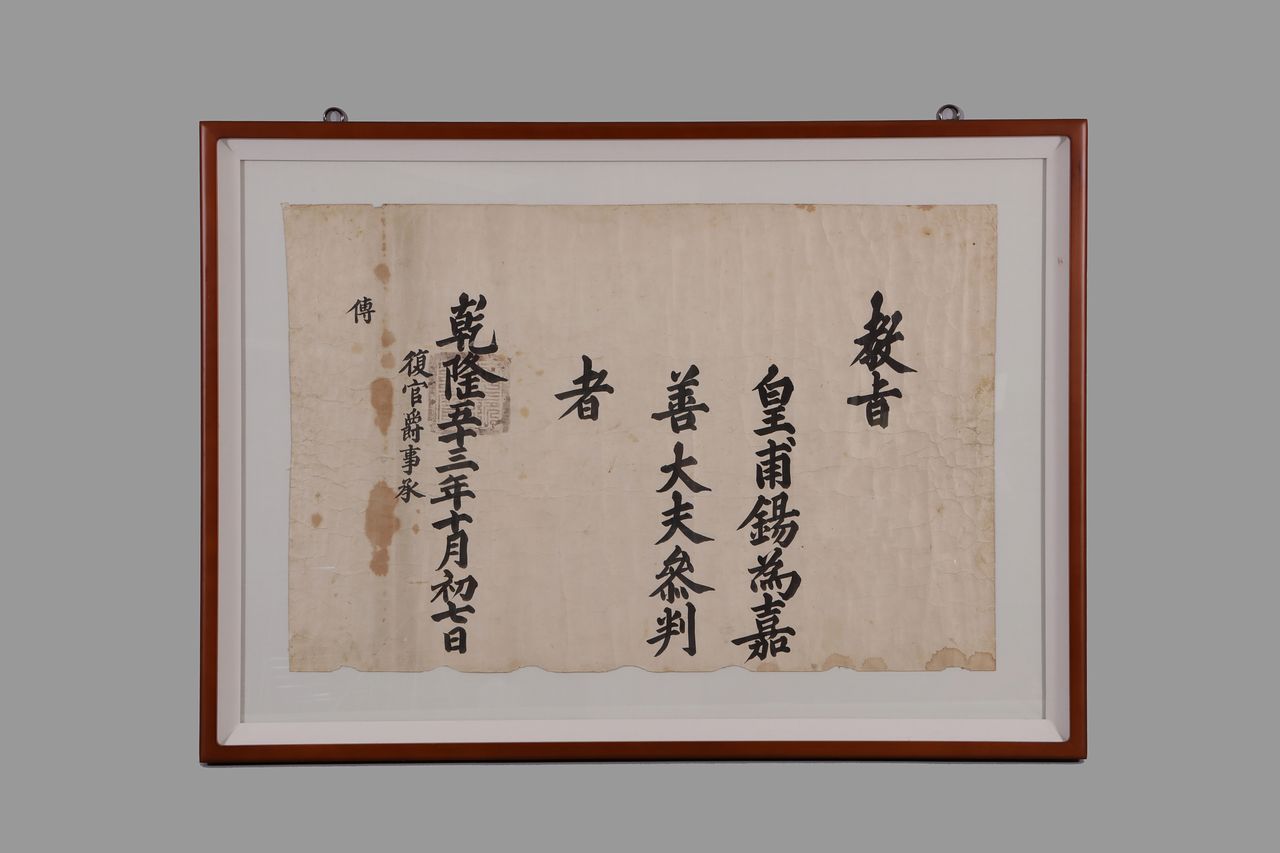 教旨
皇甫錫為嘉
善大夫參判
者
乾隆五十三年十月初七日
復官爵事承
傳